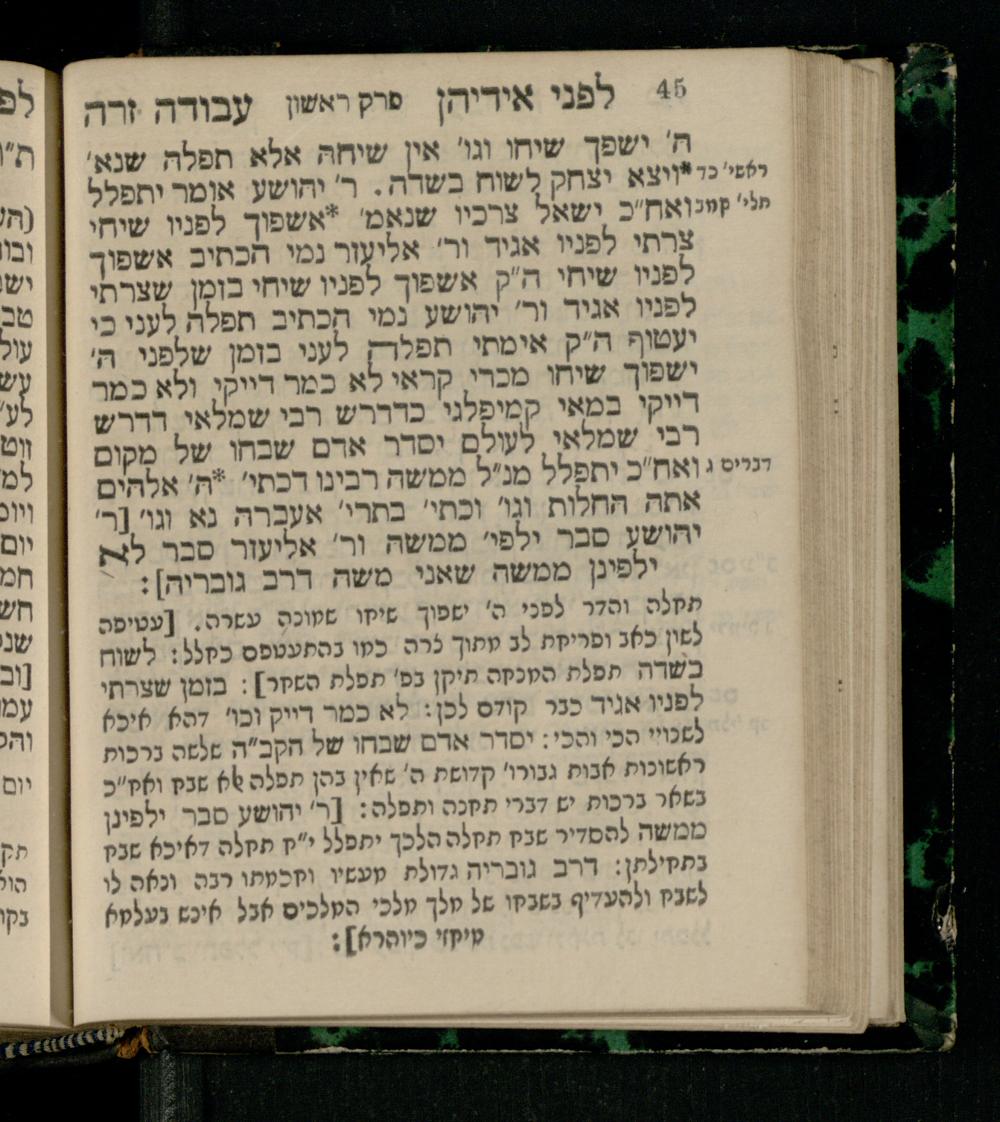 45 לפני אידיהן פרק ראשון עבודה זרה
ה' ישפך שיחו וגו' אין שיחה אלא תפלה שנא'
ראשי' כד *ויצא יצחק לשוח בשדה. ר' יהושע אומר יתפלל
תלי' קמב ואח"כ ישאל צרכיו שנאמ' *אשפוך לפניו שיחי
צרתי לפניו אגיד ור' אליעזר נמי הכתיב אשפוך
לפניו שיחי ה"ק אשפוך לפניו שיחי בזמן שצרתי
לפניו אגיד ור' יהושע נמי הכתיב תפלה לעני כי
יעטוף ה"ק אימתי תפלה לעני בזמן שלפני ה'
ישפוך שיחו מכדי קראי לא כמר דייקי ולא כמר
דייקי במאי קמיפלגי כדדרש רבי שמלאי דדרש
רבי שמלאי לעולם יסדר אדם שבחו של מקום
דברים ג ואח"כ יתפלל מנ"ל ממשה רבינו דכתי' *ה' אלהים
אתה החלות וגו' וכתי' בתרי' אעברה נא וגו' [ר'
יהושע סבר ילפי' ממשה ור' אליעזר סבר לא
ילפינן ממשה שאני משה דרב גובריה]:
תחלה והדר לפני ה' ישפוך שיחו שמונה עשרה. [עטיפה
לשון כאב ופריחת לב מתוך צרה כמו בהתעטפם כחלל: לשוח
בשדה תפלת המנחה תיקן בפ' תפלת השחר]: בזמן שצרתי
לפניו אגיד כבר קודם לכן: לא כמר דייק וכו' דהא איכא
לשנויי הכי והכי: יסדר אדם שבחו של הקב"ה שלשה ברכות
ראשונות אבות גבורו' קדושת ה' שאין בהן תפלה לא שבח ואח"כ
בשאר ברכות יש דברי תחנה ותפלה: [ר' יהושע סבר ילפינן
ממשה להסדיר שבח תחלה הלכך יתפלל י"ח תחלה דאיכא שבח
בתחילתן: דרב גובריה גדולת מעשיו וחכמתו רבה ונאה לו
לשבח ולהעדיף בשבחו של מלך מלכי המלכים אבל איניש בעלמא
מיחזי כיוהרא]: